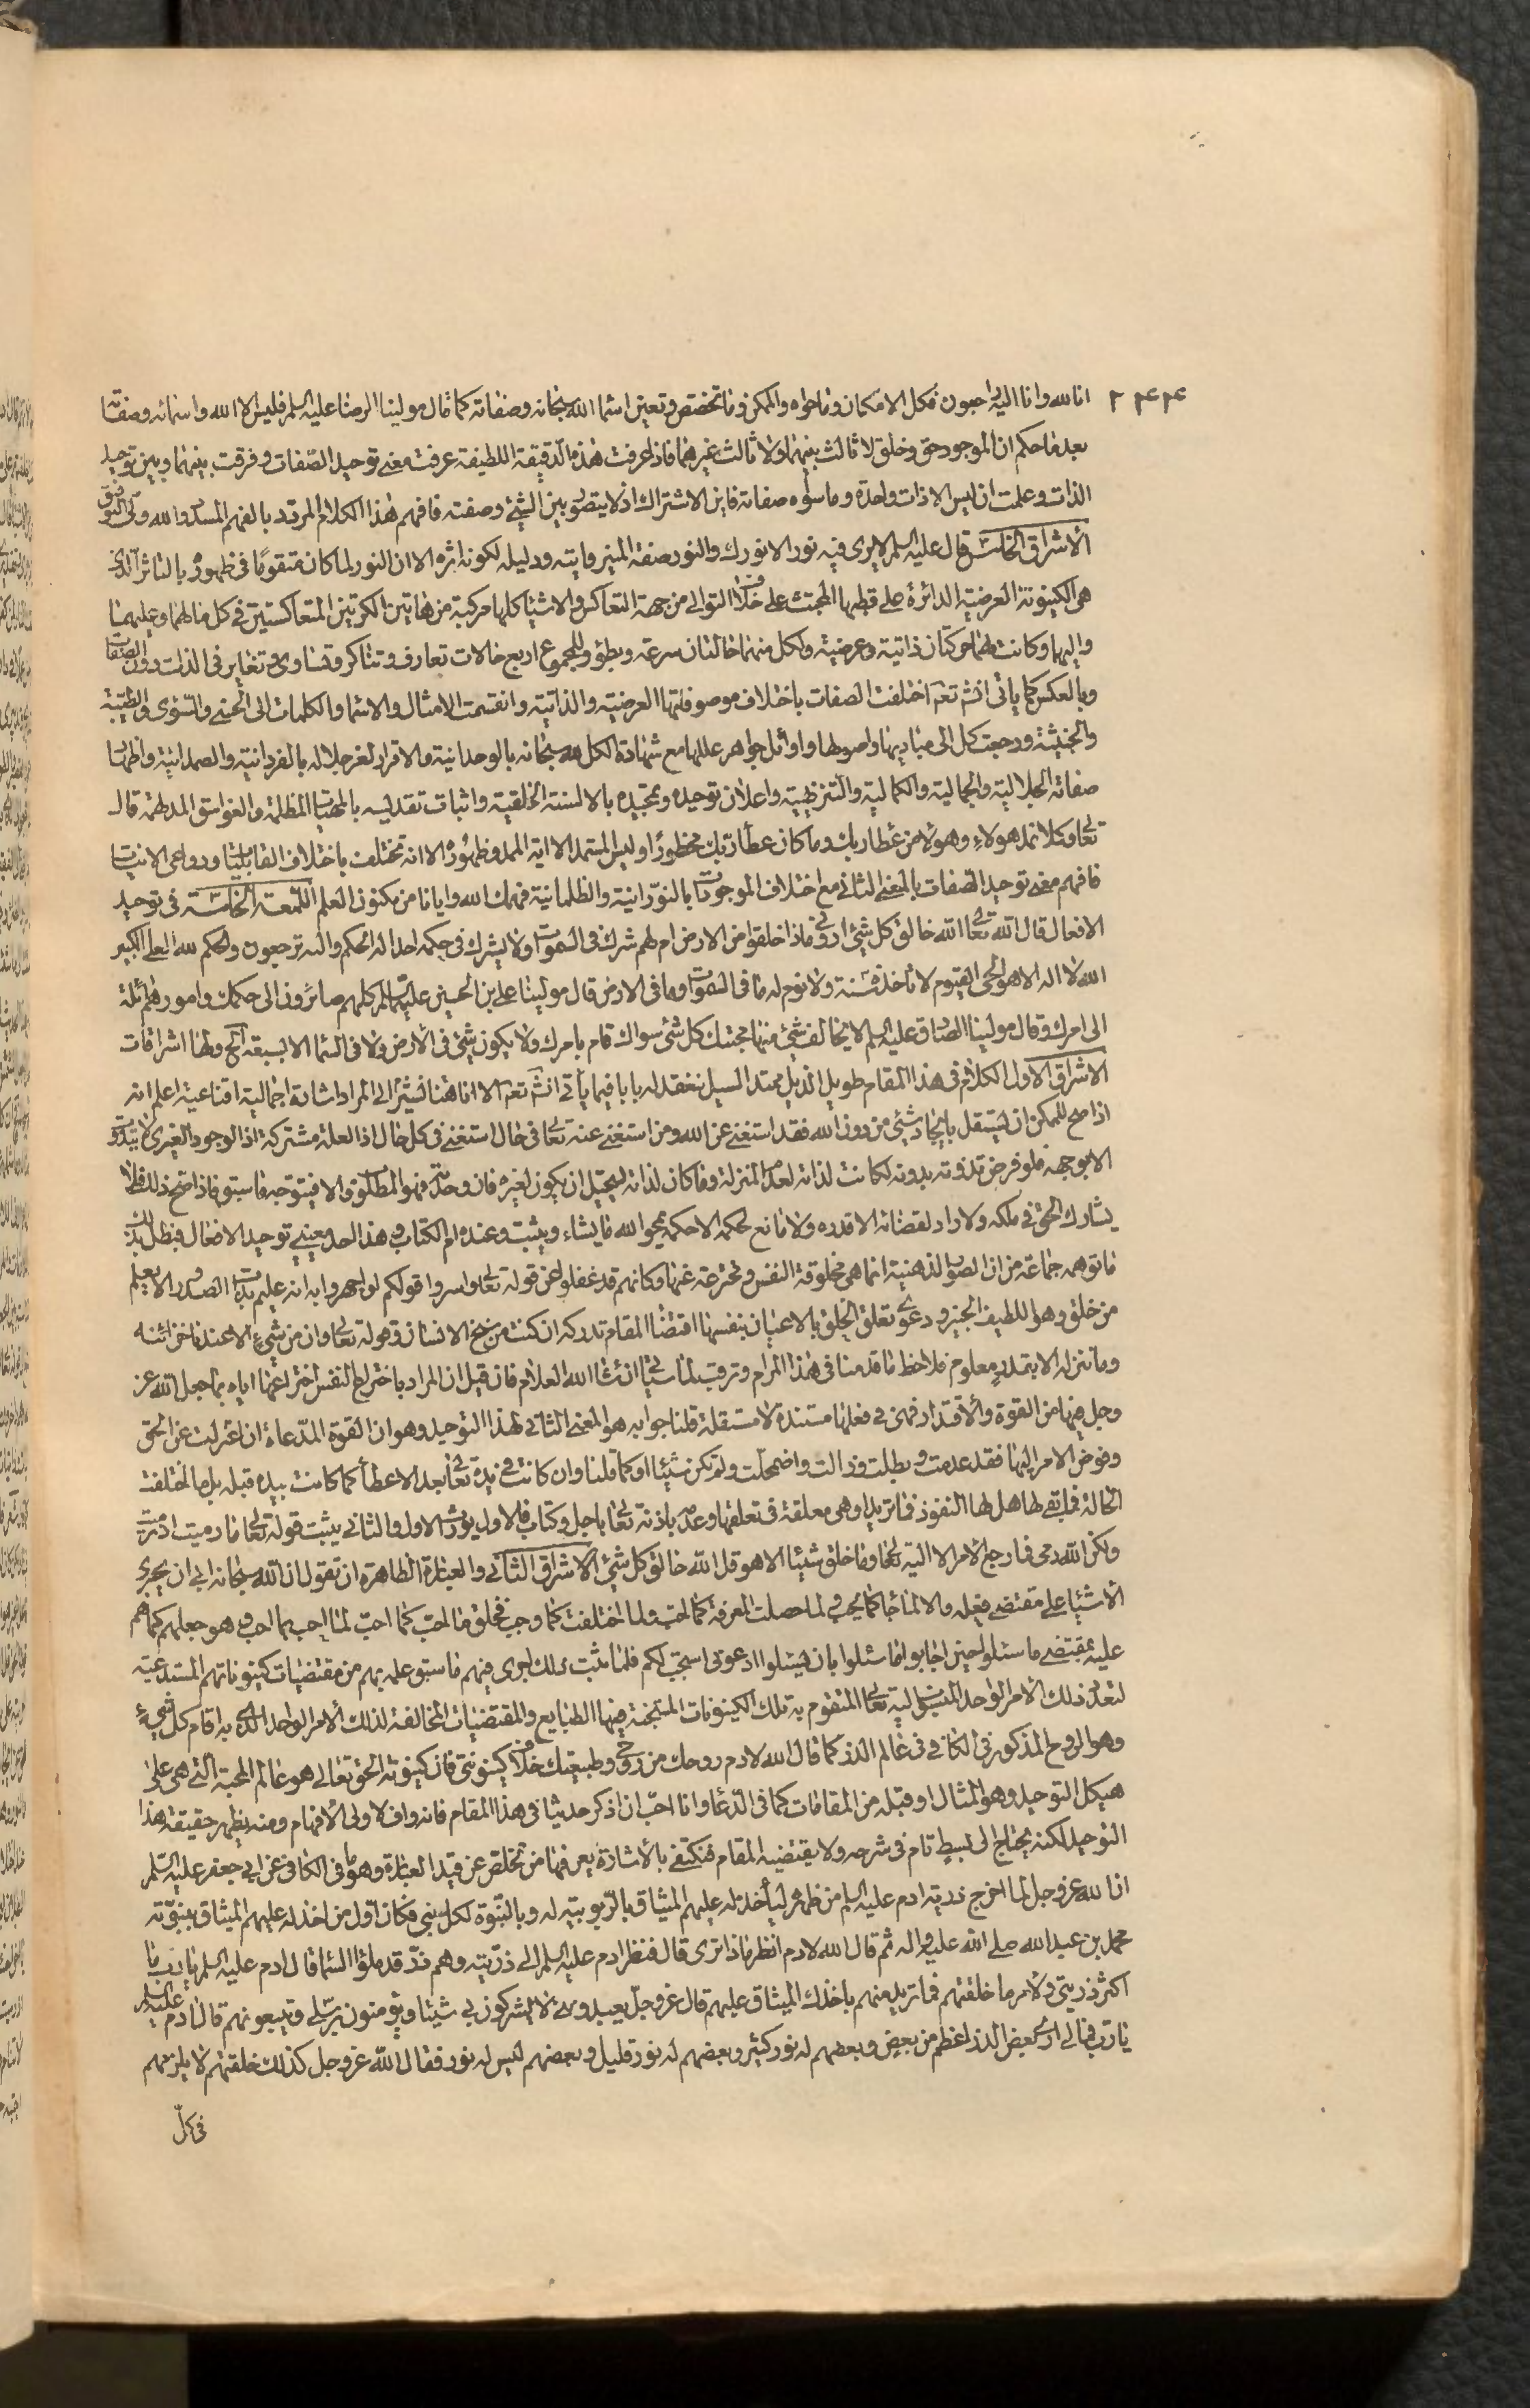 ٢٤٤ انا لله وانا اليه راجعون فكل الامكان وما حواه والممكن وما تخصص وتعين اسما الله سبحانه وصفاته كما قال مولينا الرضا عليه السلم فليس الا الله واسمائه وصفاته
بعد ما حكم ان الموجود حق وخلق لا ثالث بينهما ولا ثالث غيرهما فاذا عرفت هذه الدقيقة اللطيفة عرفت معنى توحيد الصفات وفرقت بينهما وبين توحيد
الذات وعلمت ان ليس الا ذات واحدة وما سواه صفاته فاين الاشتراك اذ لا يتصور بين الشيئ وصفته فافهم هذا الكلام المردد بالفهم المسدد والله ولى التوفيق
الاشراق الثالث قال عليه السلم لا يرى فيه نور الا نورك والنور صفة المنير وايته ودليله لكونه اثره الا ان النور لما كان متقوما فى ظهوره بالتاثر الذى
هى الكينونة العرضية الدائرة على قطبها المجتث على خلاف التوالى من جهة التعاكس والاشيا كلها مركبة من هاتين الكرتين المتعاكستين فى كل ما لهما وعليهما
واليهما وكانت لهما حركتان ذاتية وعرضية ولكل منهما حالتان سرعة وبطؤ وللمجموع اربع حالات تعارف وتناكر وتساوى وتغاير فى الذات دون الصفات
وبالعكس كما ياتى انش تعم اختلفت الصفات باختلاف موصوفاتها العرضية والذاتية وانقسمت الامثال والاسما والكلمات الى الحسنى والسوئى والطيبة
والخبيثة ورجعت كل الى مباديها واصولها واوائل جواهر عللها مع شهادة الكل لله سبحانه بالوحدانية والاقرار لعز جلاله بالفردانية والصمدانية واظهار
صفاته الجلالية والجمالية والكمالية والتنزيهية واعلان توحيده وتمجيده بالالسنة الخلقية واثبات تقديسه بالجهات المظلمة والغواسق المدلهمة قال
تعا وكلا نمد هولاء وهولاء من عطا ربك وما كان عطاء ربك محظورا وليس المستمد الا اية الممد وظهوره الا انه تختلف باختلاف القابليات ودواعى الانيات
فافهم معنى توحيد الصفات بالمعنى الثانى مع اختلاف الموجودات بالنورانية والظلمانية فهمك الله وايانا من مكنون العلم اللمعة الخامسة فى توحيد
الافعال قال الله تعا الله خالق كل شئ ارونى ماذا خلقوا من الارض ام لهم شرك فى السموات ولا يشرك فى حكمه احدا له الحكم واليه ترجعون والحكم لله العلى الكبير
الله لا اله الا هو الحى القيوم لا تاخذه سنة ولا نوم له ما فى السموات وما فى الارض قال مولينا على بن الحسين عليهما السلم كلهم صائرون الى حكمك وامورهم ائلة
الى امرك وقال مولينا الصادق عليه السلم لا يخالف شئ منها محبتك كل شئ سواك قام بامرك ولا يكون شئ فى الارض ولا فى السما الا بسبعة الخ ولها اشراقات
الاشراق الاول الكلام فى هذا المقام طويل الذيل ممتد السيل نعقد له بابا فيما يأتى انش تعم الا انا هنا نشير الى المراد اشارة اجمالية اقناعية اعلم انه
اذا صح للممكن ان يستقل بايجاد شئ من دون الله فقد استغنى عن الله ومن استغنى عنه تعا فى حال استغنى فى كل حال اذ العلة مشتركة اذ الوجود الغيرى لا يتذوت
الا بوجهه فلو فرض تذوته بدونه لكانت لذاته لعدم المنزلة وما كان لذاته يستحيل ان يكون لغيره فان وحدته فهو المطلوب والا فيتوجه ما سبق فاذا اتضح ذلك فلا
يشارك الحق فى ملكه ولا راد لقضائه الا قدره ولا مانع لحكمه الا حكمه يمحوا الله ما يشاء ويثبت وعنده ام الكتاب وهذا احد معينى توحيد الافعال فبطل بذلك
ما توهمه جماعة من ان الصور الذهنية انما هى مخلوقة النفس ومخترعة عنها وكانهم قد غفلوا عن قوله تعا واسروا قولكم او اجهروا به انه عليم بذات الصدور الا يعلم
من خلق وهو اللطيف الخبير ودعوى تعلق الخلق بالاعيان بنفسها اقتضا المقام تدركه ان كنت من سنخ الانسان وقوله تعا وان من شئ الا عندنا خزائنه
وما ننزله الا بقدر معلوم فلاحظ ما قدمنا فى هذا المرام وترقب لما سيأتى انشا الله العلام فان قيل ان المراد باختراع النفس اختراعها اياه بما جعل الله عز
وجل فيها من القوة والاقتدار فهى فى فعلها مستندة لا مستقلة قلنا جوابه هو المعنى الثانى لهذا التوحيد وهو ان القوة المدعاة ان اعتزلت عن الحق
وفوض الامر اليها فقد عدمت وبطلت وزالت واضمحلت ولم تكن شيئا كما قلنا وان كانت فى يده تعا بعد الاعطا كما كانت بيده قبله بل ما اختلفت
الحالة فما بقى لها هل لها النفوذ فى ما تريد او هى معلقة فى تعلقها وعدمه باذنه تعا باجل وكتاب فالاول يورث الاول والثانى يثبت قوله تعا ما رميت اذ رميت
ولكن الله رمى فارجع الامر الا اليه تعا وما خلق شيئا الا هو قل الله خالق كل شئ الاشراق الثانى والعبارة الظاهرة ان تقول ان الله سبحانه ابى ان يجرى
الاشيا على مقتضى فعله والا لما جا كما يحب ولما حصلت المعرفة كما احب ولما اختلفت كما وجب فخلق ما احب كما احب لما احب بما احب وهو جعلهم كما هم
عليه بمقتضى ما سئلوا حين اجابوا لما سئلوا بان يسئلوا ادعونى استجب لكم فلما ثبت ذلك اجرى فيهم ما سبق علمه بهم من مقتضيات كينوناتهم المستدعية
لتعدد ذلك الامر الواحد المنسوب اليه تعا المتقوم به تلك الكينونات المستجنة فيها الطبايع والمقتضيات المخالفة لذلك الامر الواحد الذى به اقام كل شئ
وهو الروح المذكور فى الكافى فى عالم الذر كما قال الله لادم روحك من روحى وطبيعتك خلاف كينونتى فان كينونة الحق تعالى هو عالم المحبة التى هى على
هيكل التوحيد وهو المثال او قبله من المقامات كما فى الدعا وانا احب ان اذكر حديثا فى هذا المقام فانه واف لاولى الافهام ومنه يظهر حقيقة هذا
التوحيد لكنه يحتاج الى بسط تام فى شرحه ولا يقتضيه المقام فنكتفى بالاشارة يعرفها من تخلص عن قيد العبارة وهو ما فى الكافى عن ابى جعفر عليه السلم
ان الله عز وجل لما اخرج ذرية ادم عليه السلم من ظهره ليأخذ له عليهم الميثاق بالربوبية له وبالنبوة لكل نبى فكان اول من اخذ له عليهم الميثاق بنبوته
محمد بن عبد الله صلى الله عليه واله ثم قال الله لادم انظر ماذا ترى قال فنظر ادم عليه السلم الى ذريته وهم ذر قد ملؤا السما قال ادم عليه السلم يا رب ما
اكثر ذريتى ولامر ما خلقتهم فما تريد منهم باخذك الميثاق عليهم قال عز وجل يعبدوننى لا يشركون بى شيئا ويؤمنون برسلى ويتبعونهم قال ادم عليه السلم
يا رب فما لى ارى بعض الذر اعظم من بعض وبعضهم له نور كثير وبعضهم له نور قليل وبعضهم ليس له نور فقال الله عز وجل كذلك خلقتهم لابلوهم
فى كل